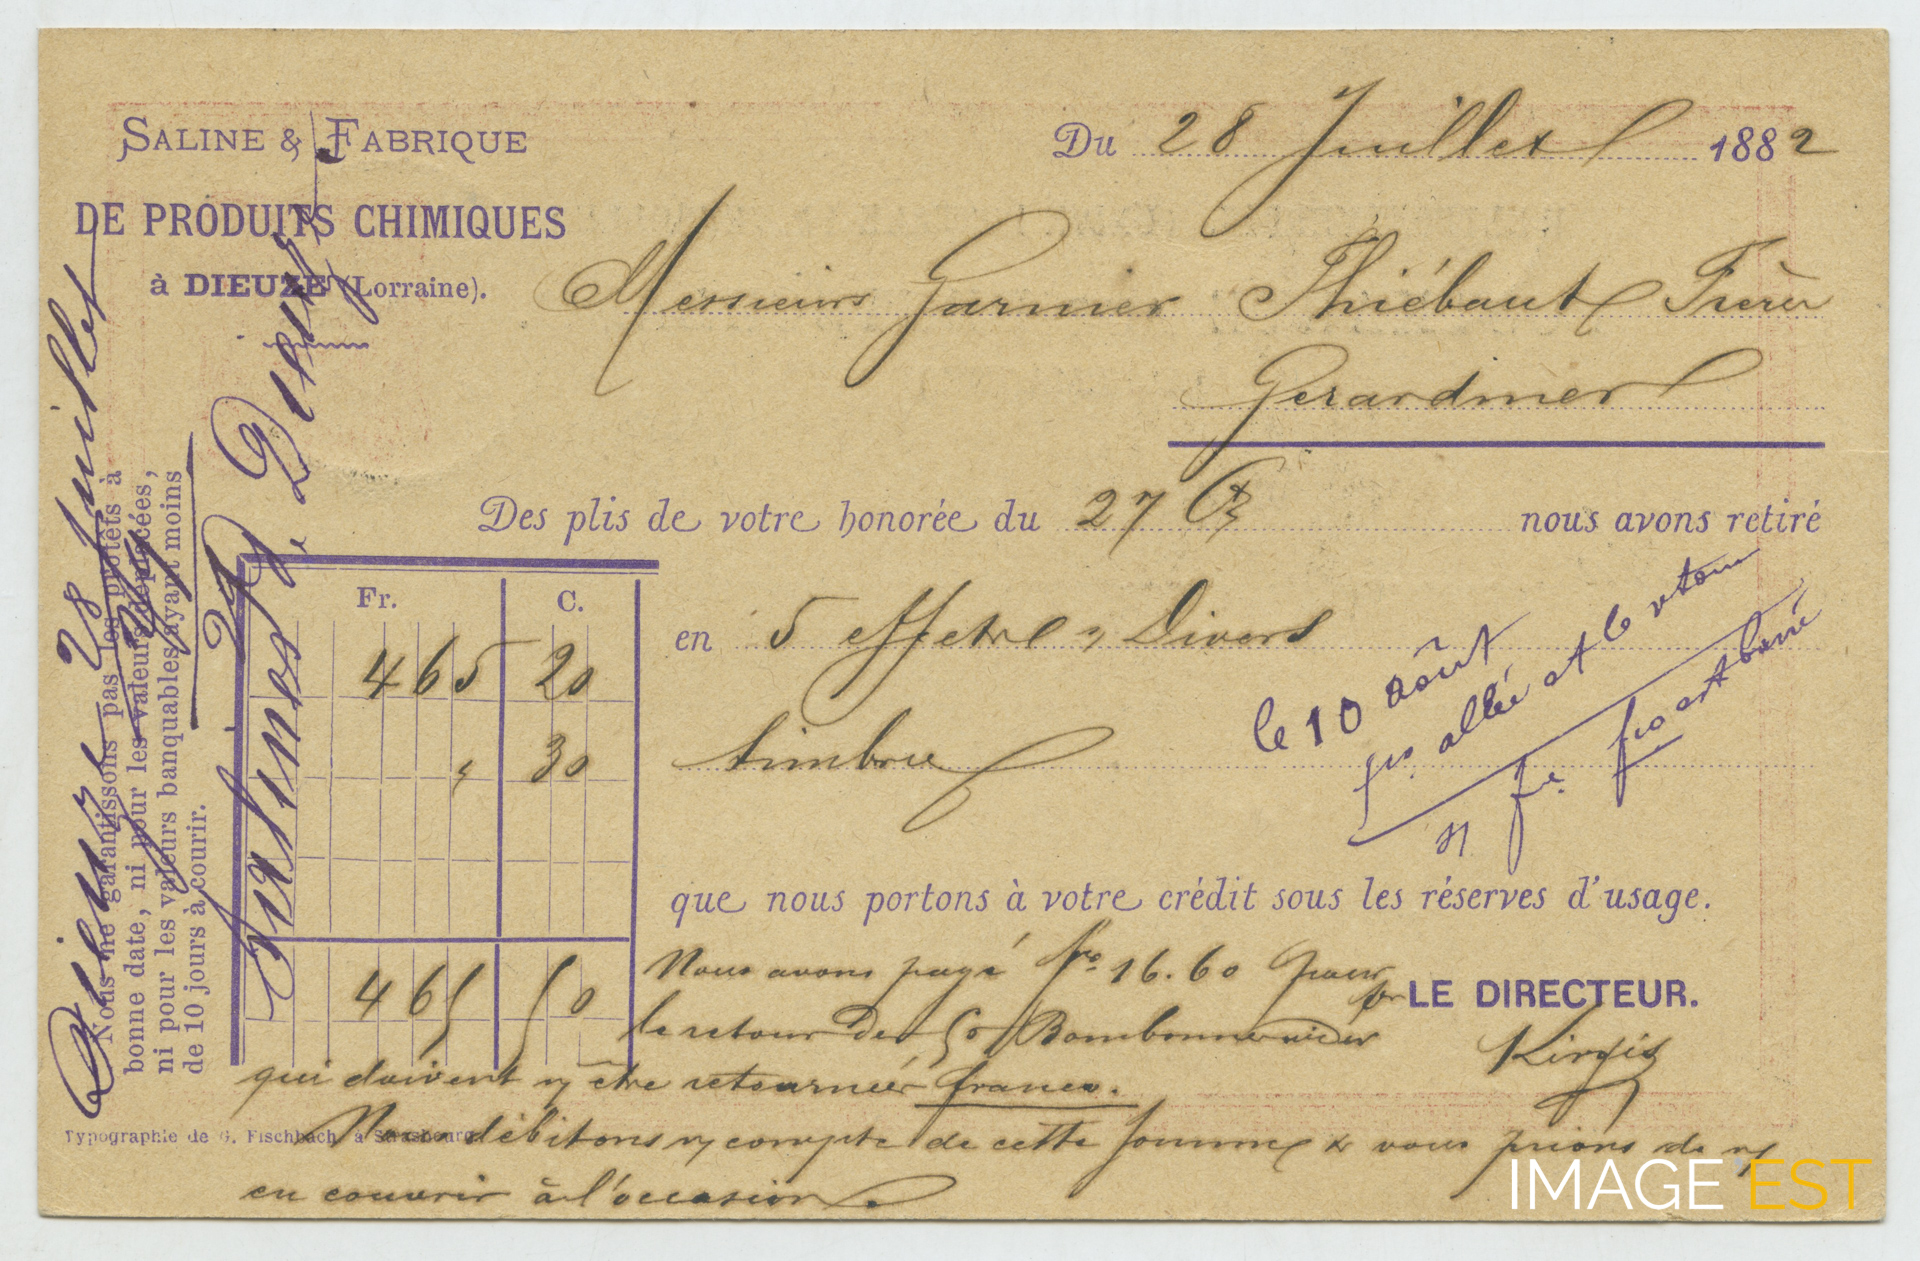 SALINE & FABRIQUE
DE PRODUITS CHIMIQUES
à DIEUZE (Lorraine).
Du 28 Juillet 1882
Messieurs Garnier Thiébaut Frères
Gerardmer
Des plis de votre honorée du 27 Ct nous avons retiré
Fr. C.
465 20
30
465 50
en 5 effets s/ Divers
timbre
le 10 août
allée et le
que nous portons à votre crédit sous les réserves d'usage.
Nous avons payé frs 16.60 pour
le retour de 50 Bombonnes vides
qui doivent n/ être retournées franco.
Nous débitons n/ compte de cette somme & vous prions de n/
en couvrir à l'occasion
pr LE DIRECTEUR.
Nous ne garantissons pas les protêts à
bonne date, ni pour les valeurs déplacées,
ni pour les valeurs banquables ayant moins
de 10 jours à courir.
Dieuze 28 Juillet
Salines de Dieuze
Typographie de G. Fischbach, à Strasbourg
IMAGE'EST